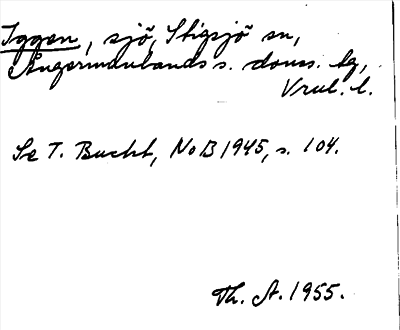 Iggen, sjö, Stigsjö sn,
Ångermanlands s. doms. tg,
Vnl. l.
Se T. Bucht, NoB 1945, s. 104.
Th. A. 1955.